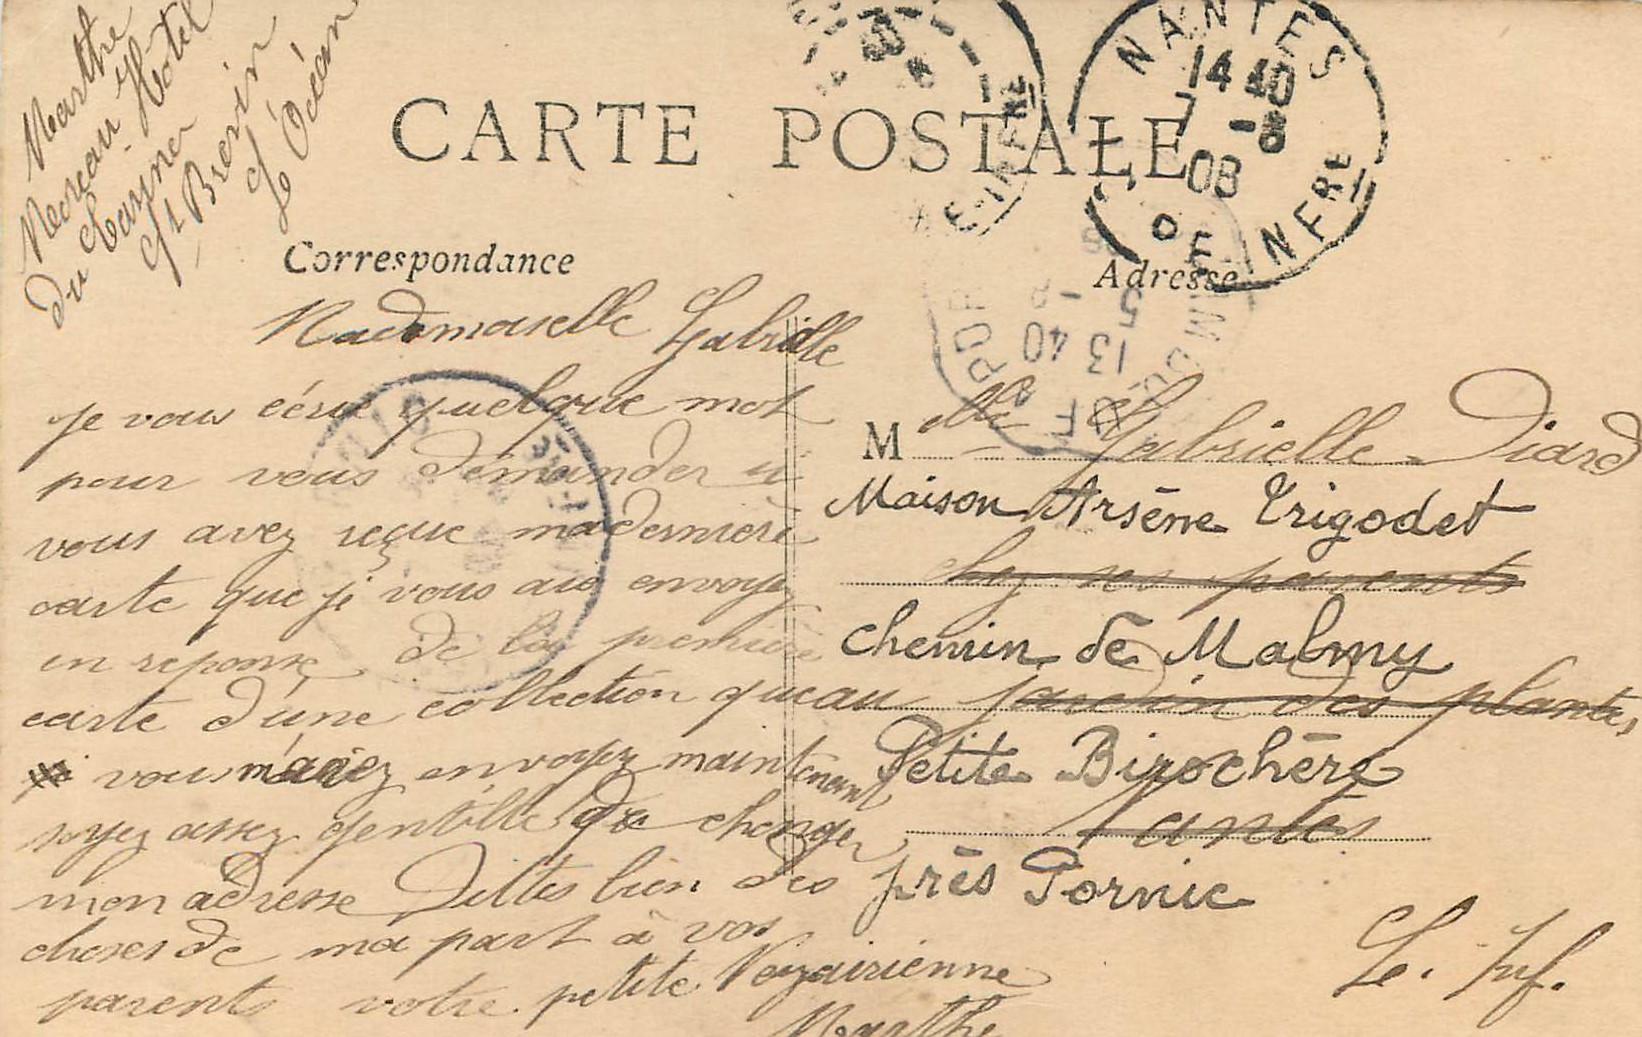 Marthe
Moreau Hotel
du Casino
St Brevin
L'Océan
CARTE POSTALE
NANTES
14 40
7 -8
08
INFRE
Correspondance
Mademoiselle Gabrielle
je vous écrie quelque mot
pour vous demander si
vous avez reçue ma derniere
carte que je vous ais envoyez
en reponse de la première
carte d'une collection que
vous m'aviez envoyez maintenant
soyez assez gentille de changer
mon adresse Dittes bien des
choses de ma part à vos
parents votre petite
Marthe
Adresse
13 40
5 -8
M elle Gabrielle Diard
Maison Arsène Trigodet
chez ses parents
chemin de Malmy
au jardin des plantes
Petite Birochère
Nantes
près Pornic
Le. Inf.